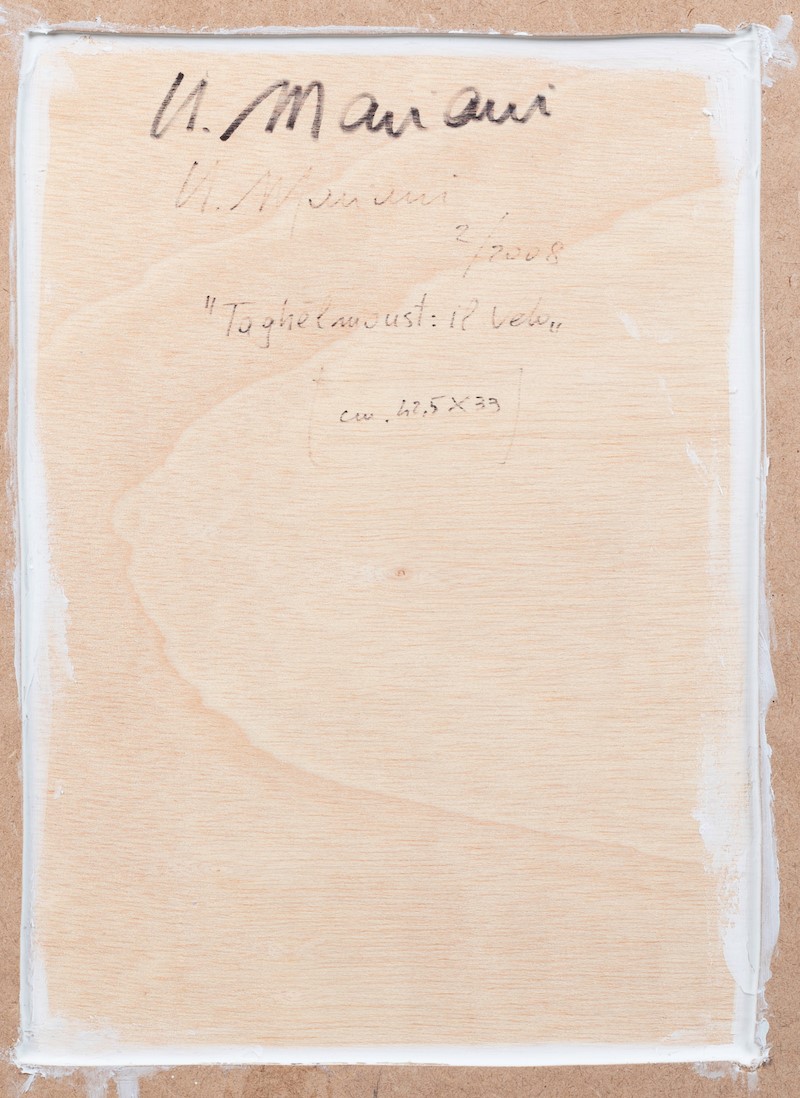 U. Mariani
U. Mariani
2/2008
"Taghèlmoust: il velo"
(cm. 42,5 X 33)